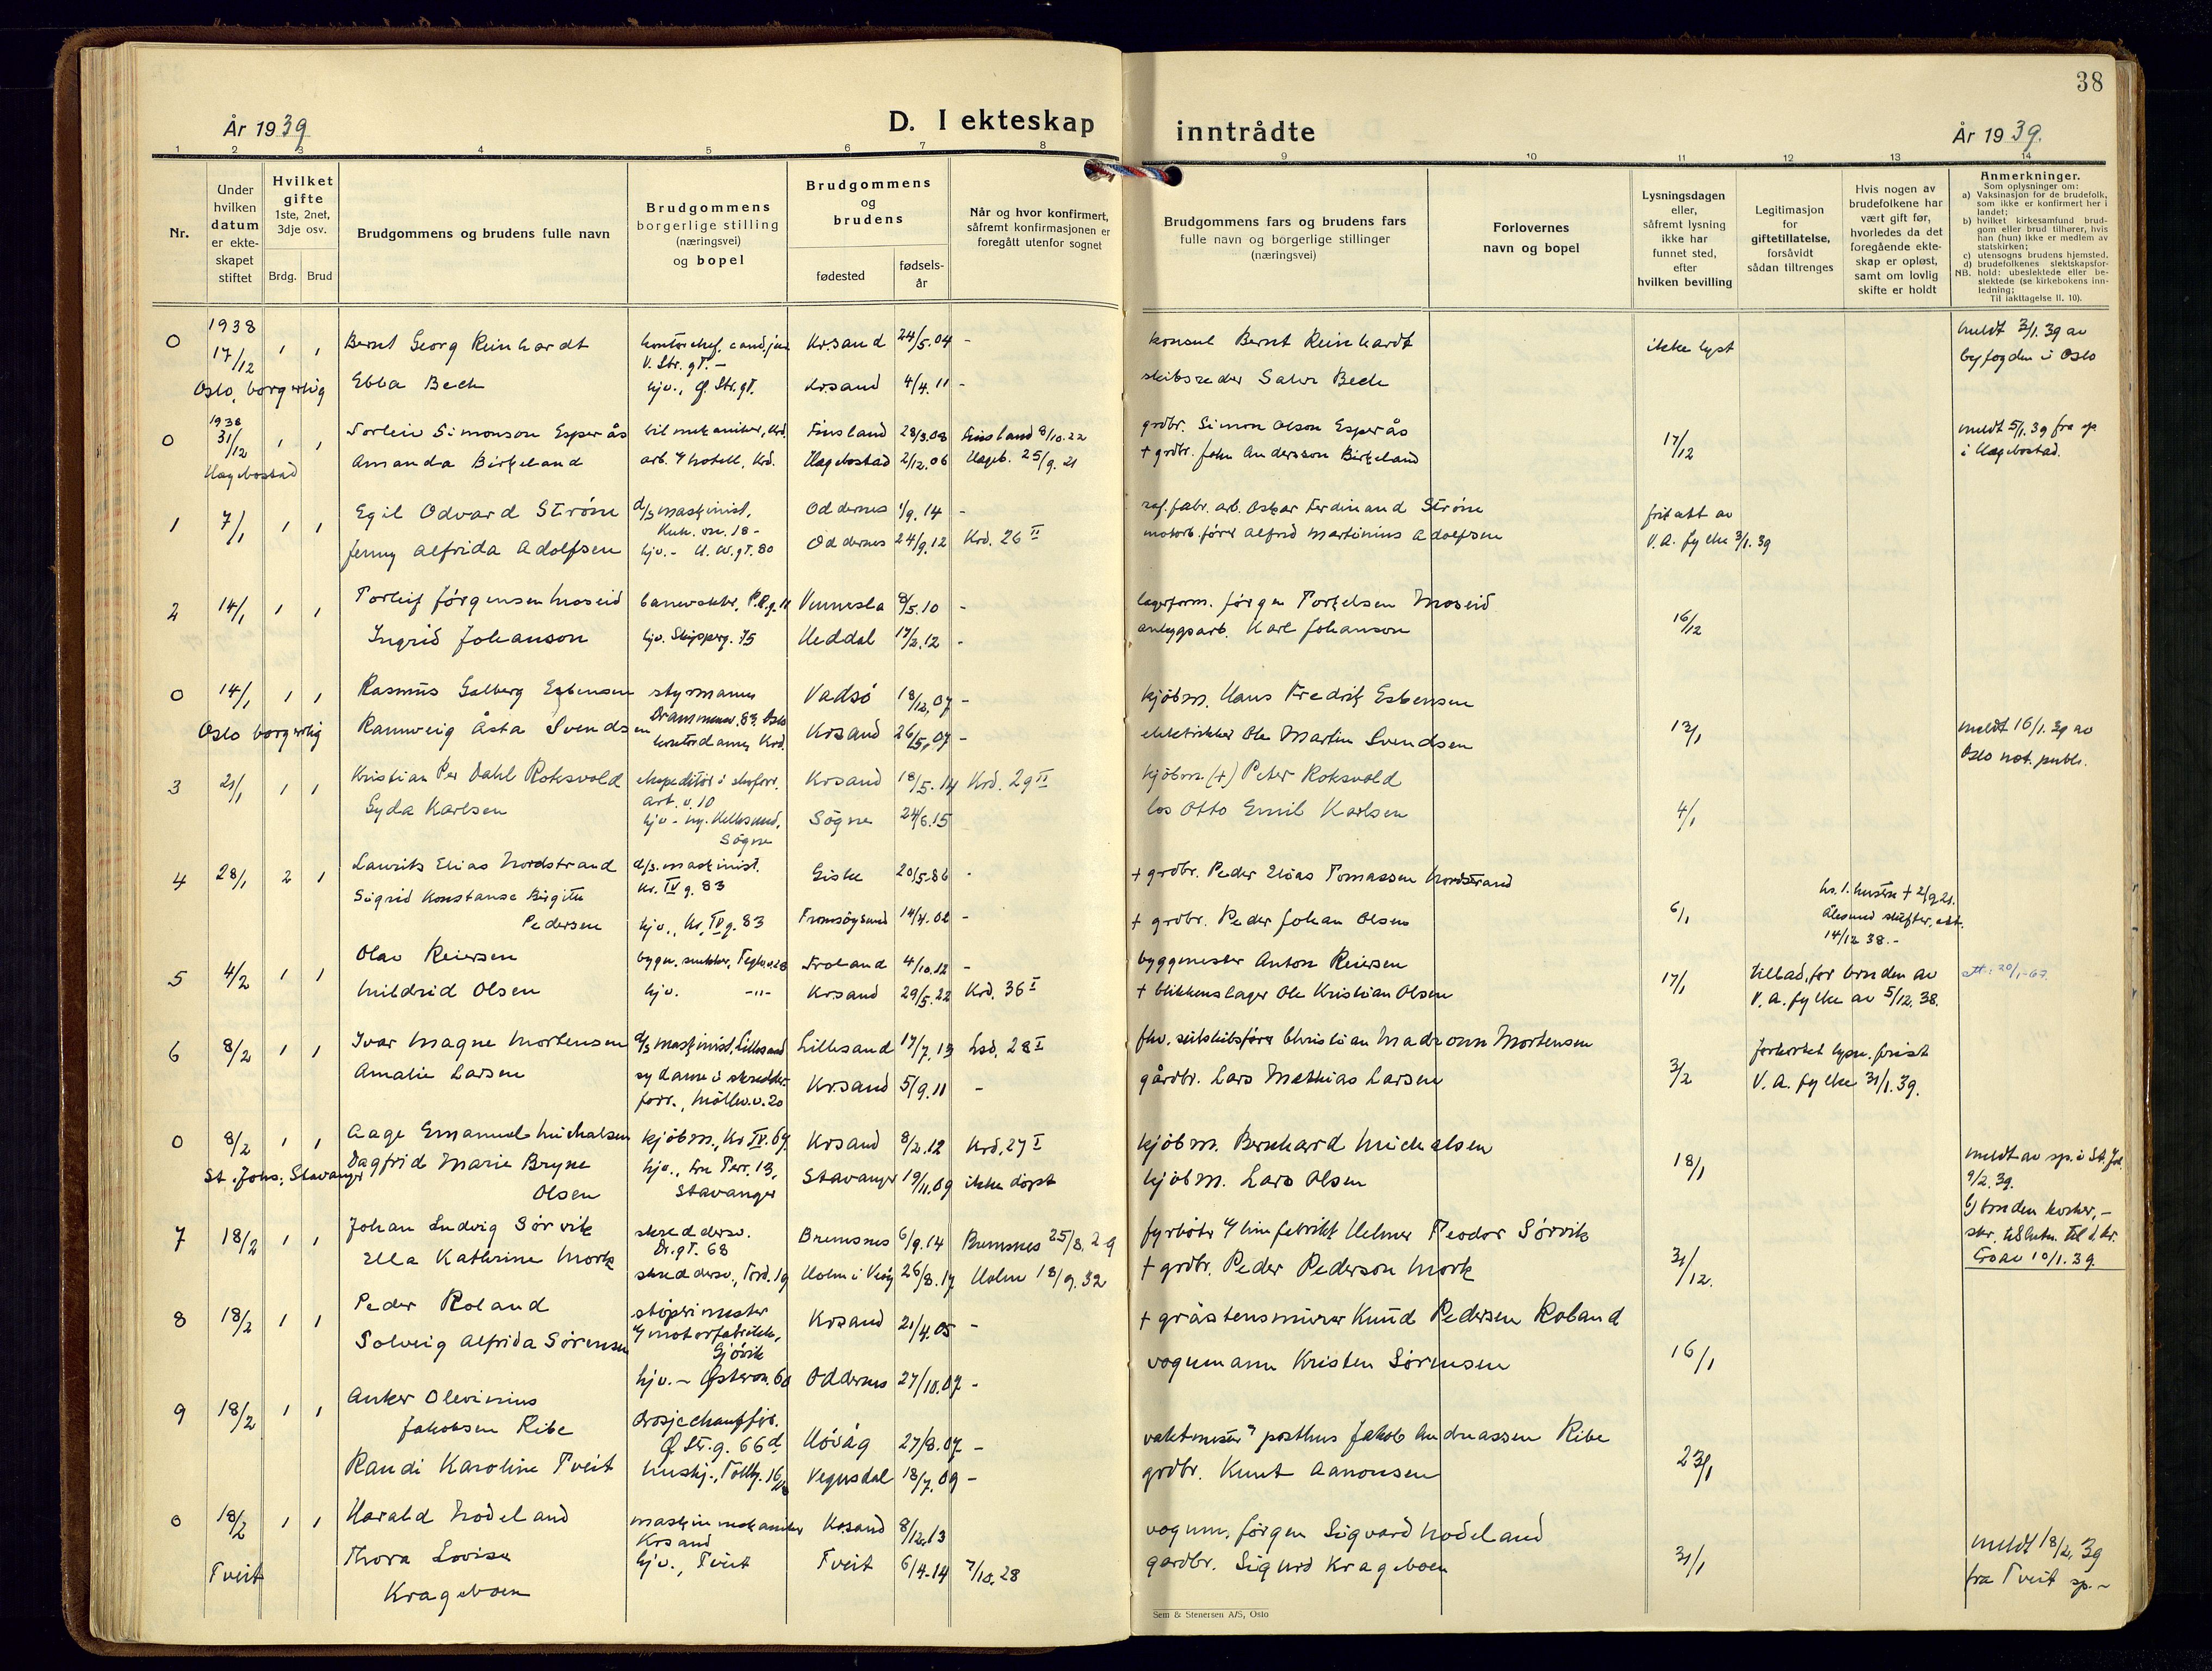 38
År 1939
D. I ekteskap inntrådte
År 1939.
1 2 3 4 5 6 7 8 9 10 11 12 13 14
Nr.
Under hvilken datum er ekte-skapet stiftet
Hvilket gifte 1ste, 2net, 3dje osv.
Brdg. Brud
Brudgommens og brudens fulle navn
Brudgommens borgerlige stilling (næringsvei) og bopel
Brudgommens og brudens
fødested
fødsels-år
Når og hvor konfirmert, såfremt konfirmasjonen er foregått utenfor sognet
Brudgommens fars og brudens fars fulle navn og borgerlige stillinger (næringsvei)
Forlovernes navn og bopel
Lysningsdagen eller, såfremt lysning ikke har funnet sted, efter hvilken bevilling
Legitimasjon for giftetillatelse, forsåvidt sådan tiltrenges
Hvis nogen av brudefolkene har vært gift før, hvorledes da det foregående ekte-skap er opløst, samt om lovlig skifte er holdt
Anmerkninger.
Som oplysninger om:
a) Vaksinasjon for de brudefolk, som ikke er konfirmert her i landet;
b) hvilket kirkesamfund brud-gom eller brud tilhører, hvis han (hun) ikke er medlem av statskirken;
c) utensogns brudens hjemsted.
d) brudefolkenes slektskapsfor-hold: ubeslektede eller be-slektede (se kirkebokens inn-ledning;
NB. Til iakttagelse II. 10).
0 1938 17/12 1 1 Bernt Georg Reinhardt kontorchef, cand.jur. V. Str.gt. - Krsand 24/5.04 - konsul Bernt Reinhardt ikke lyst meldt 3/1.39 av
Oslo, borgerlig Ebba Bech hjv., Ø. Str.gt. Krsand 4/4.11 - skibsreder Salve Bech byfogden i Oslo
0 1938 31/12 1 1 Torleiv Simonson Esperås bilmekaniker, Krd. Finsland 28/3.08 Finsland 8/10.22 grdbr. Simon Olson Esperås 17/12 meldt 5/1.39 fra sp.
Hægebostad Amanda Birkeland arb. v/hotell, Krd. Hægebostad 2/12.06 Hægeb. 25/9.21 + grdbr. John Andersson Birkeland i Hægebostad.
1 7/1 1 1 Egil Odvard Strøm d/s maskinist, Oddernes 1/9.14 - raf.fabr.arb. Oskar Ferdinand Strøm fritatt av
Jenny Alfrida Adolfsen hjv. - H.W.gt. 80 Oddernes 24/9.12 Krd. 26 II motorb.fører Alfred Martinius Adolfsen V.A. fylke 3/1.39
2 14/1 1 1 Torleif Jørgensen Moseid banevokter, Vennesla 8/5.10 - lagerform. Jørgen Torkelsen Moseid 16/12
Ingrid Johanson hjv. Skipperg. 75 Heddal 17/2.12 - anleggsarb. Karl Johanson
0 14/1 1 1 Rasmus Galberg Esbensen styrmann Drammensv. 83. Oslo Vadsö 18/12.07 - kjöbm. Hans Fredrik Esbensen 13/1
Oslo borgerlig Rannveig Åsta Svendsen kontordame, Krd. Krsand 26/5.07 - elektriker Ole Martin Svendsen meldt 16/1.39 av Oslo not. publ.
3 21/1 1 1 Kristian Per Dahl Roksvold ekspeditør i skoforr. Krsand 18/5.14 Krd. 29 II kjöbm. (+) Peter Roksvold 4/1
Gyda Karlsen hjv. - ny. Hellesund, Søgne Søgne 24/6.15 los Otto Emil Karlsen
4 28/1 2 1 Laurits Elias Nordstrand d/s. maskinist. Kr. IV g. 83 Giske 20/5.86 - + grdbr. Peder Elias Tomassen Nordstrand 6/1
Sigrid Konstanse Birgitte Pedersen hjv., Kr. IV g. 83 - + grdbr. Peder Johan Olsen
hs. 1. hustru + 2/9 21. Ålesund skifter.att. 14/12 38. -
5 4/2 1 1 Olav Reiersen bygn. snekker, Froland 4/10.12 - byggmester Anton Reiersen 17/1 tillad. for bruden av
Mildrid Olsen hjv. -"- Krsand 29/5.22 Krd. 36 I + blikkenslager Ole Kristian Olsen V.A. fylke av 5/12.38.
6 8/2 1 1 Ivar Magne Mortensen d/s maskinist, Lillesand Lillesand 17/7.13 Lsd. 28 I fhv. seilskibsfører Christian Mortensen 3/2 forkortet lysn. frist
Amalie Larsen sydame i skredder-forr., Møllev.v.20 Krsand 5/9.11 - gårdbr. Lars Mathias Larsen V.A. fylke 31/1.39.
0 8/2 1 1 Aage Emanuel Michalsen kjöbm., Kr. IV. 69 Krsand 8/2.12 Krd. 27 I kjöbm. Bernhard Michalsen 18/1 meldt av sp. i St. Joh.
St. Johs., Stavanger Dagfrid Marie Bryne Olsen hjv., Terr. 13, Stavanger Stavanger 19/11.09 ikke döpt kjöbm. Lars Olsen 9/2.39.
7 18/2 1 1 Johan Ludvig Sørvik skreddersv. Dr.gt. 68 Bremsnes 6/9.14 Bremsnes 25/8.29 fyrbøter v/limfabrikk Helmer Teodor Sørvik 31/12.
Ella Kathrine Mork skreddersv., Tord. 19 Holm i Veöy 26/8.17 Holm 18/9.32 + grdbr. Peder Pederson Mork
8 18/2 1 1 Peder Roland støperimester v/motorfabrikk, Gjövik Krsand 21/4.05 - + gråstensmurer Knud Pedersen Roland 16/1
Solveig Alfrida Sørensen hjv. - Østerv. 60 Oddernes 27/10.07 - vognmann Kristen Sørensen
9 18/2 1 1 Anker Olevinius Jakobsen Ribe drosjechauffør. Ø. Str.g. 66d Høvåg 27/8.07 - vaktmester v/ posthus Jakob Andreassen Ribe 23/1
Randi Karoline Tveit hushj., Tollb. 16 Vegusdal 18/7.09 - grdbr. Knut Aanonsen
0 18/2 1 1 Harald Nodeland maskinmekaniker Krsand Krsand 8/12.13 vognm. Jørgen Sigvard Nodeland 31/1 meldt 18/2.39
Tveit Thora Lovise Krageboen hjv., Tveit Tveit 6/4.14 7/10.28 gardbr. Sigurd Krageboen fra Tveit sp. -
Sem & Stenersen A/S, Oslo